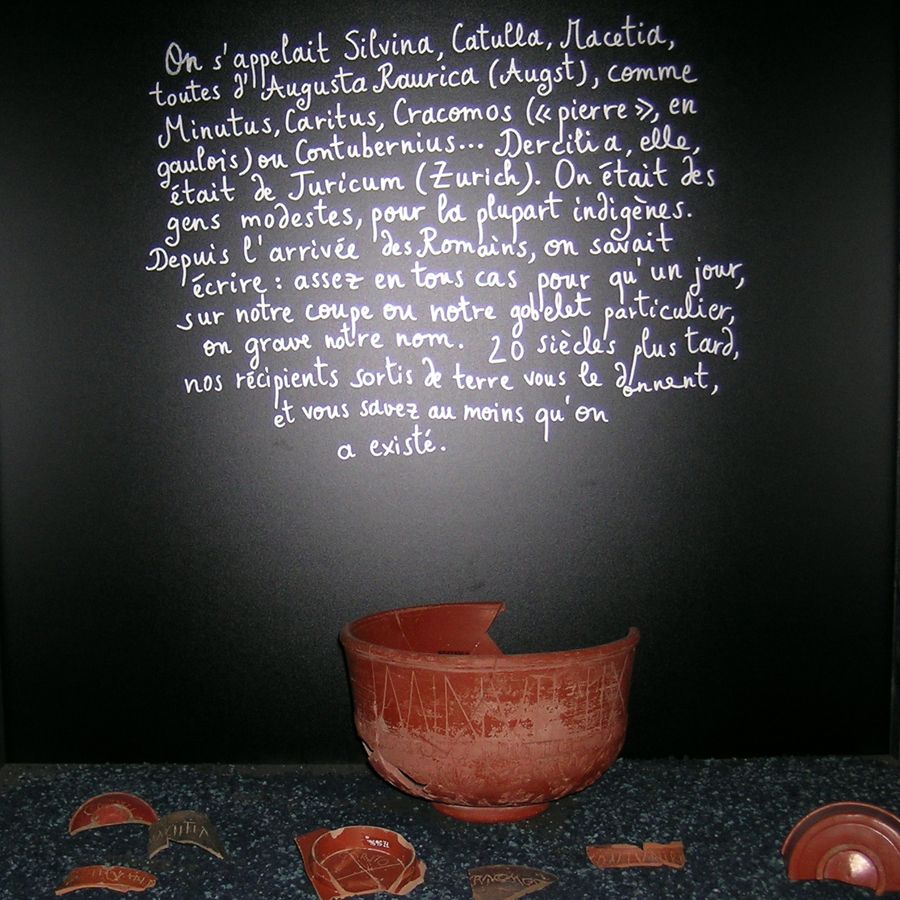 On s'appelait Silvina, Catulla, Macetia,
toutes d'Augusta Raurica (Augst), comme
Minutus, Caritus, Cracomos (« pierre », en
gaulois) ou Contubernius... Dercilia, elle,
était de Turicum (Zurich). On était des
gens modestes, pour la plupart indigènes.
Depuis l'arrivée des Romains, on savait
écrire : assez en tous cas pour qu'un jour,
sur notre coupe ou notre gobelet particulier,
on grave notre nom. 20 siècles plus tard,
nos récipients sortis de terre vous le donnent,
et vous savez au moins qu'on
a existé.